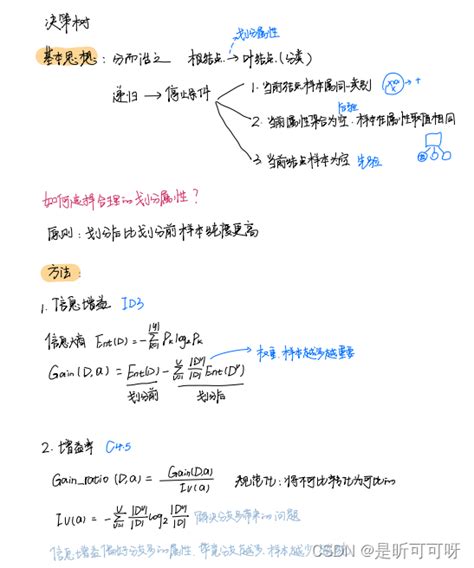 决策树
划分属性
基本思想: 分而治之 根结点 → 叶结点(分类)
递归 → 停止条件
1. 当前结点样本属同一类别
后验
2. 当前属性集合为空, 样本在属性取值相同
3. 当前结点样本为空 先验
如何选择合理的划分属性?
原则: 划分后比划分前样本纯度更高
方法:
1. 信息增益 ID3
信息熵 Ent(D) = -∑_{k=1}^{|y|} P_k log_2 P_k
权重, 样本越多越重要
Gain(D,a) = Ent(D) - ∑_{v=1}^{V} |D^v|/|D| Ent(D^v)
划分前 划分后
2. 增益率 C4.5
Gain_ratio (D,a) = Gain(D,a)/IV(a) 规范化: 将不可比转化为可比的
IV(a) = -∑_{v=1}^{V} |D^v|/|D| log_2 |D^v|/|D| 解决分支多带来的问题
信息增益偏好分支多的属性, 毕竟分支越多, 样本越少
CSDN @是昕可可呀